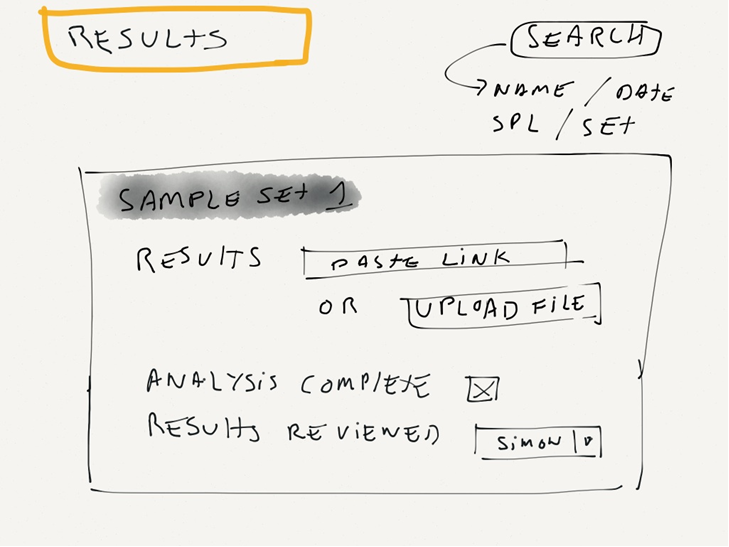 RESULTS
SEARCH
NAME / DATE
SPL / SET
SAMPLE SET 1
RESULTS PASTE LINK
OR UPLOAD FILE
ANALYSIS COMPLETE
RESULTS REVIEWED SIMON